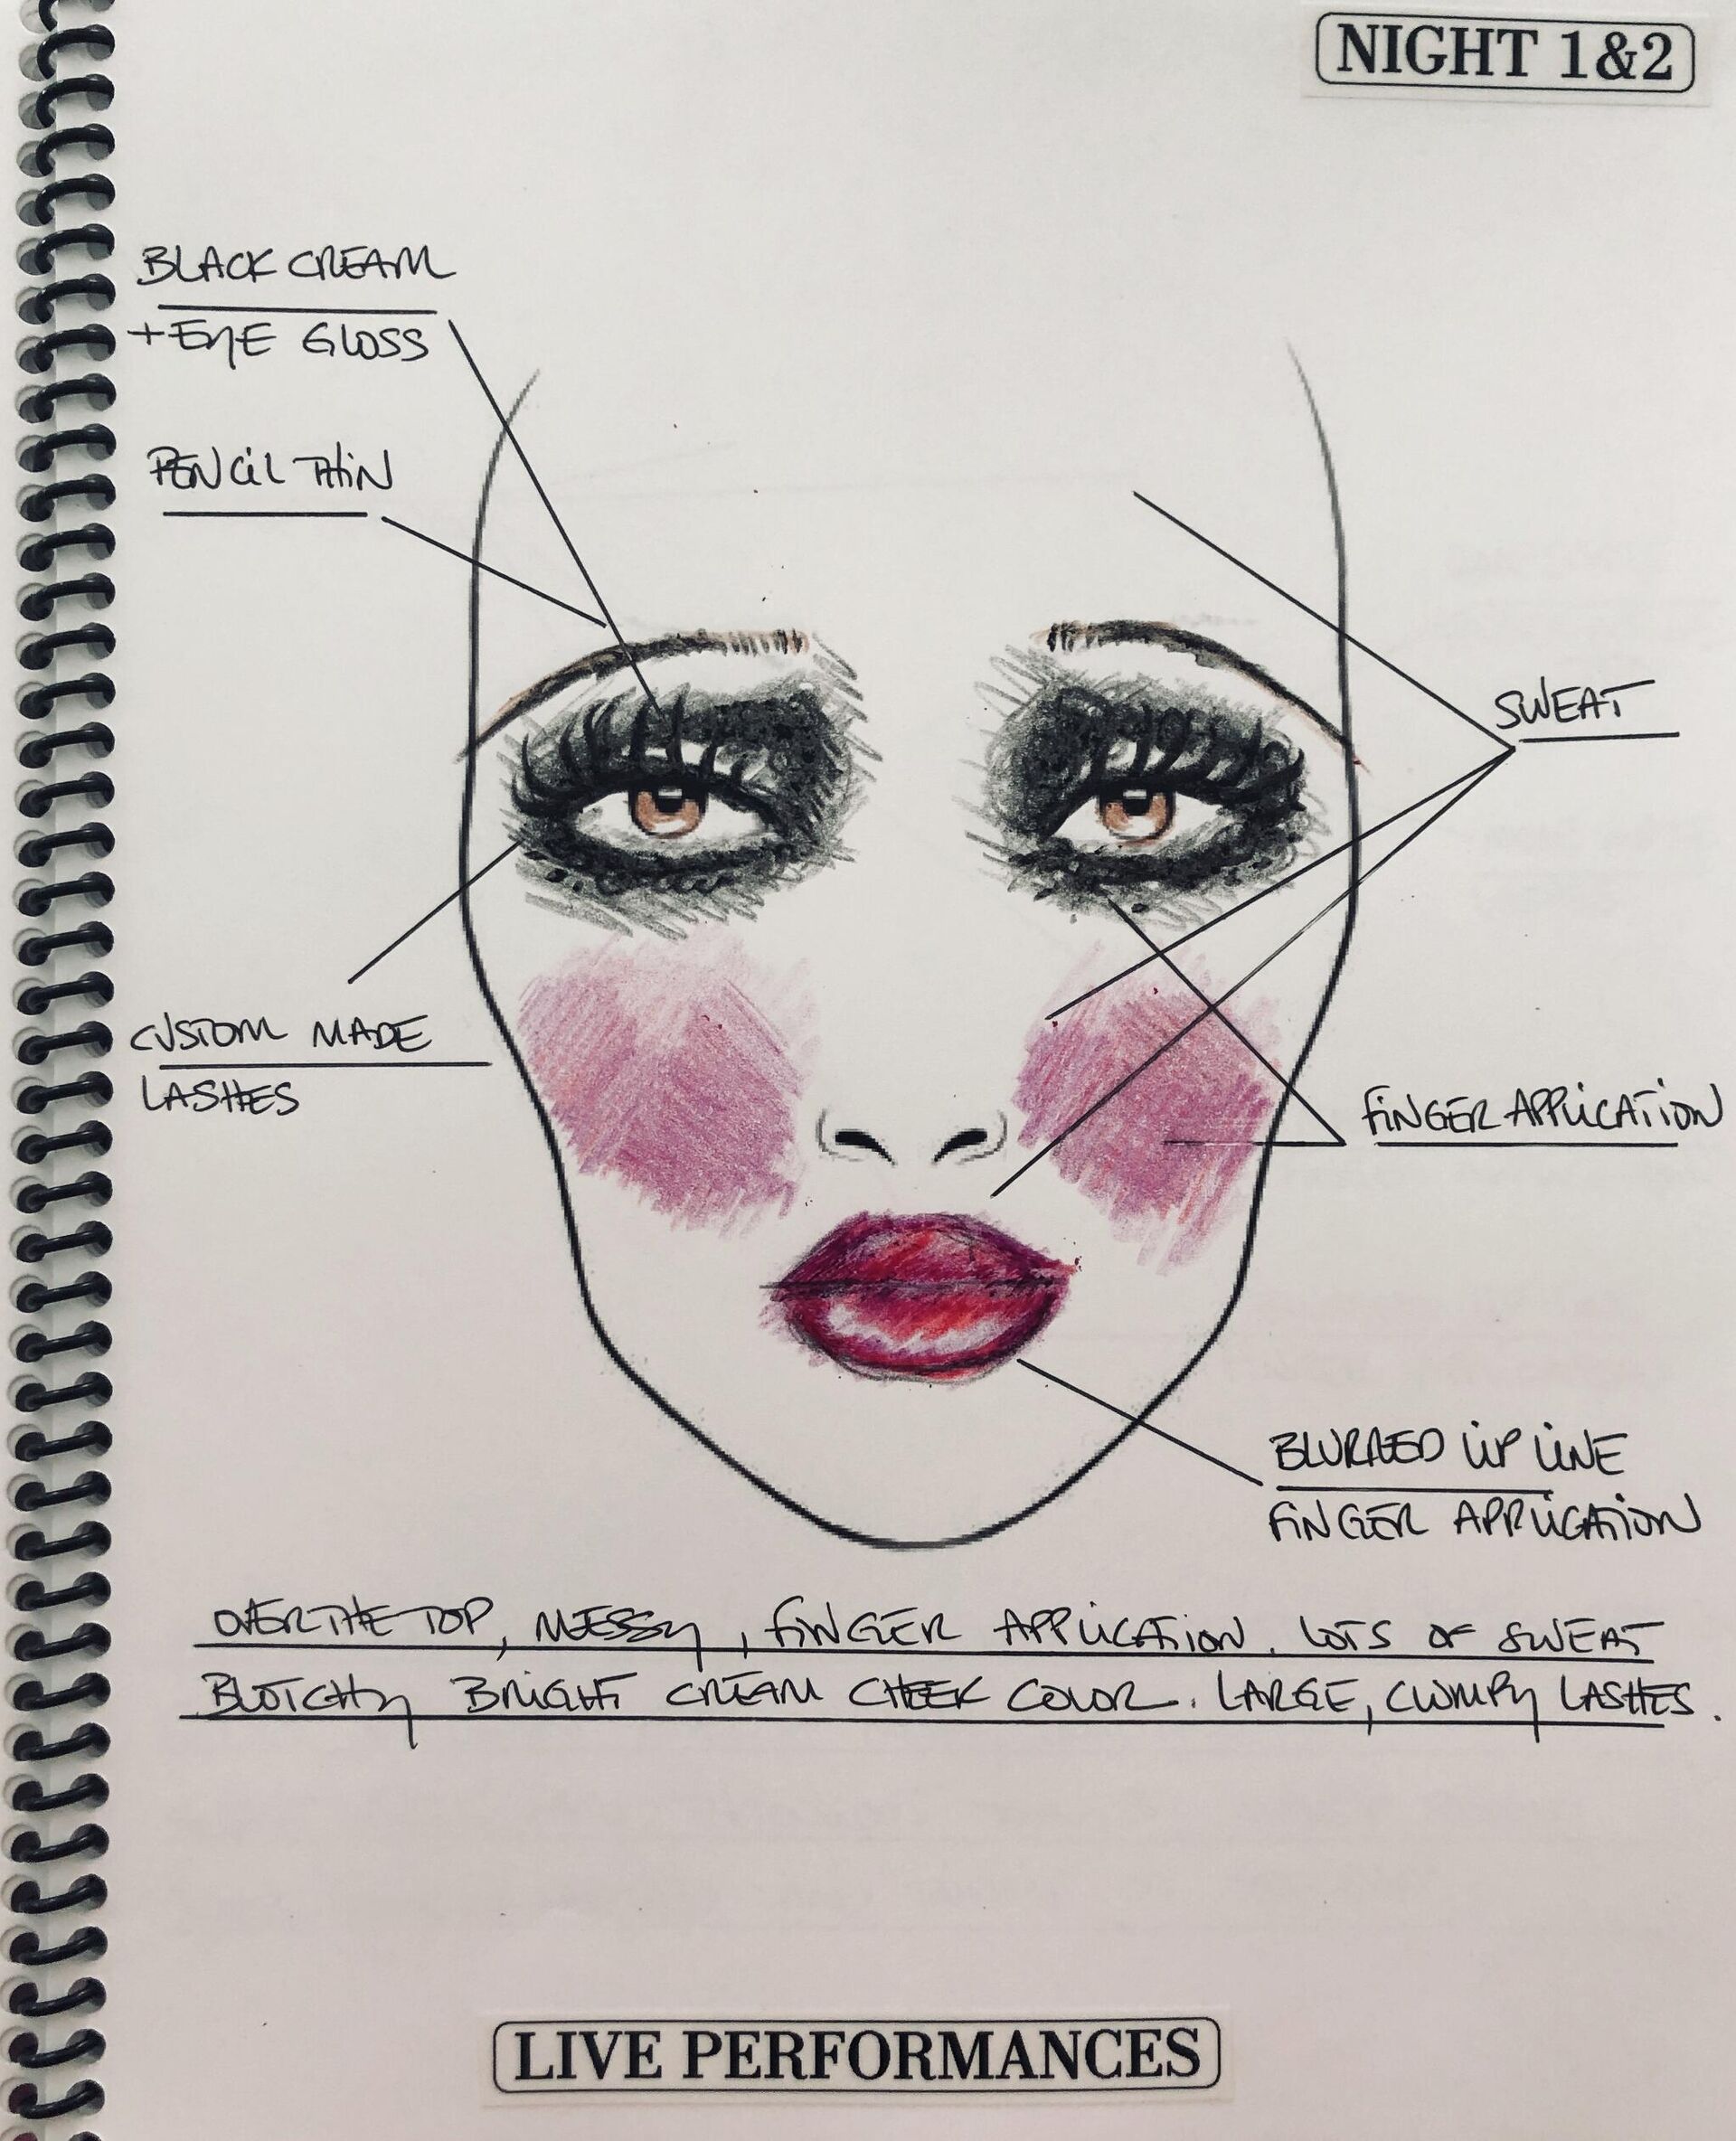 NIGHT 1&2
BLACK CREAM
+ EYE GLOSS
PENCIL THIN
SWEAT
CUSTOM MADE
LASHES
FINGER APPLICATION
BLURRED LIP LINE
FINGER APPLICATION
OVER THE TOP, MESSY, FINGER APPLICATION. LOTS OF SWEAT
BLOTCHY BRIGHT CREAM CHEEK COLOR. LARGE, CLUMPY LASHES.
LIVE PERFORMANCES